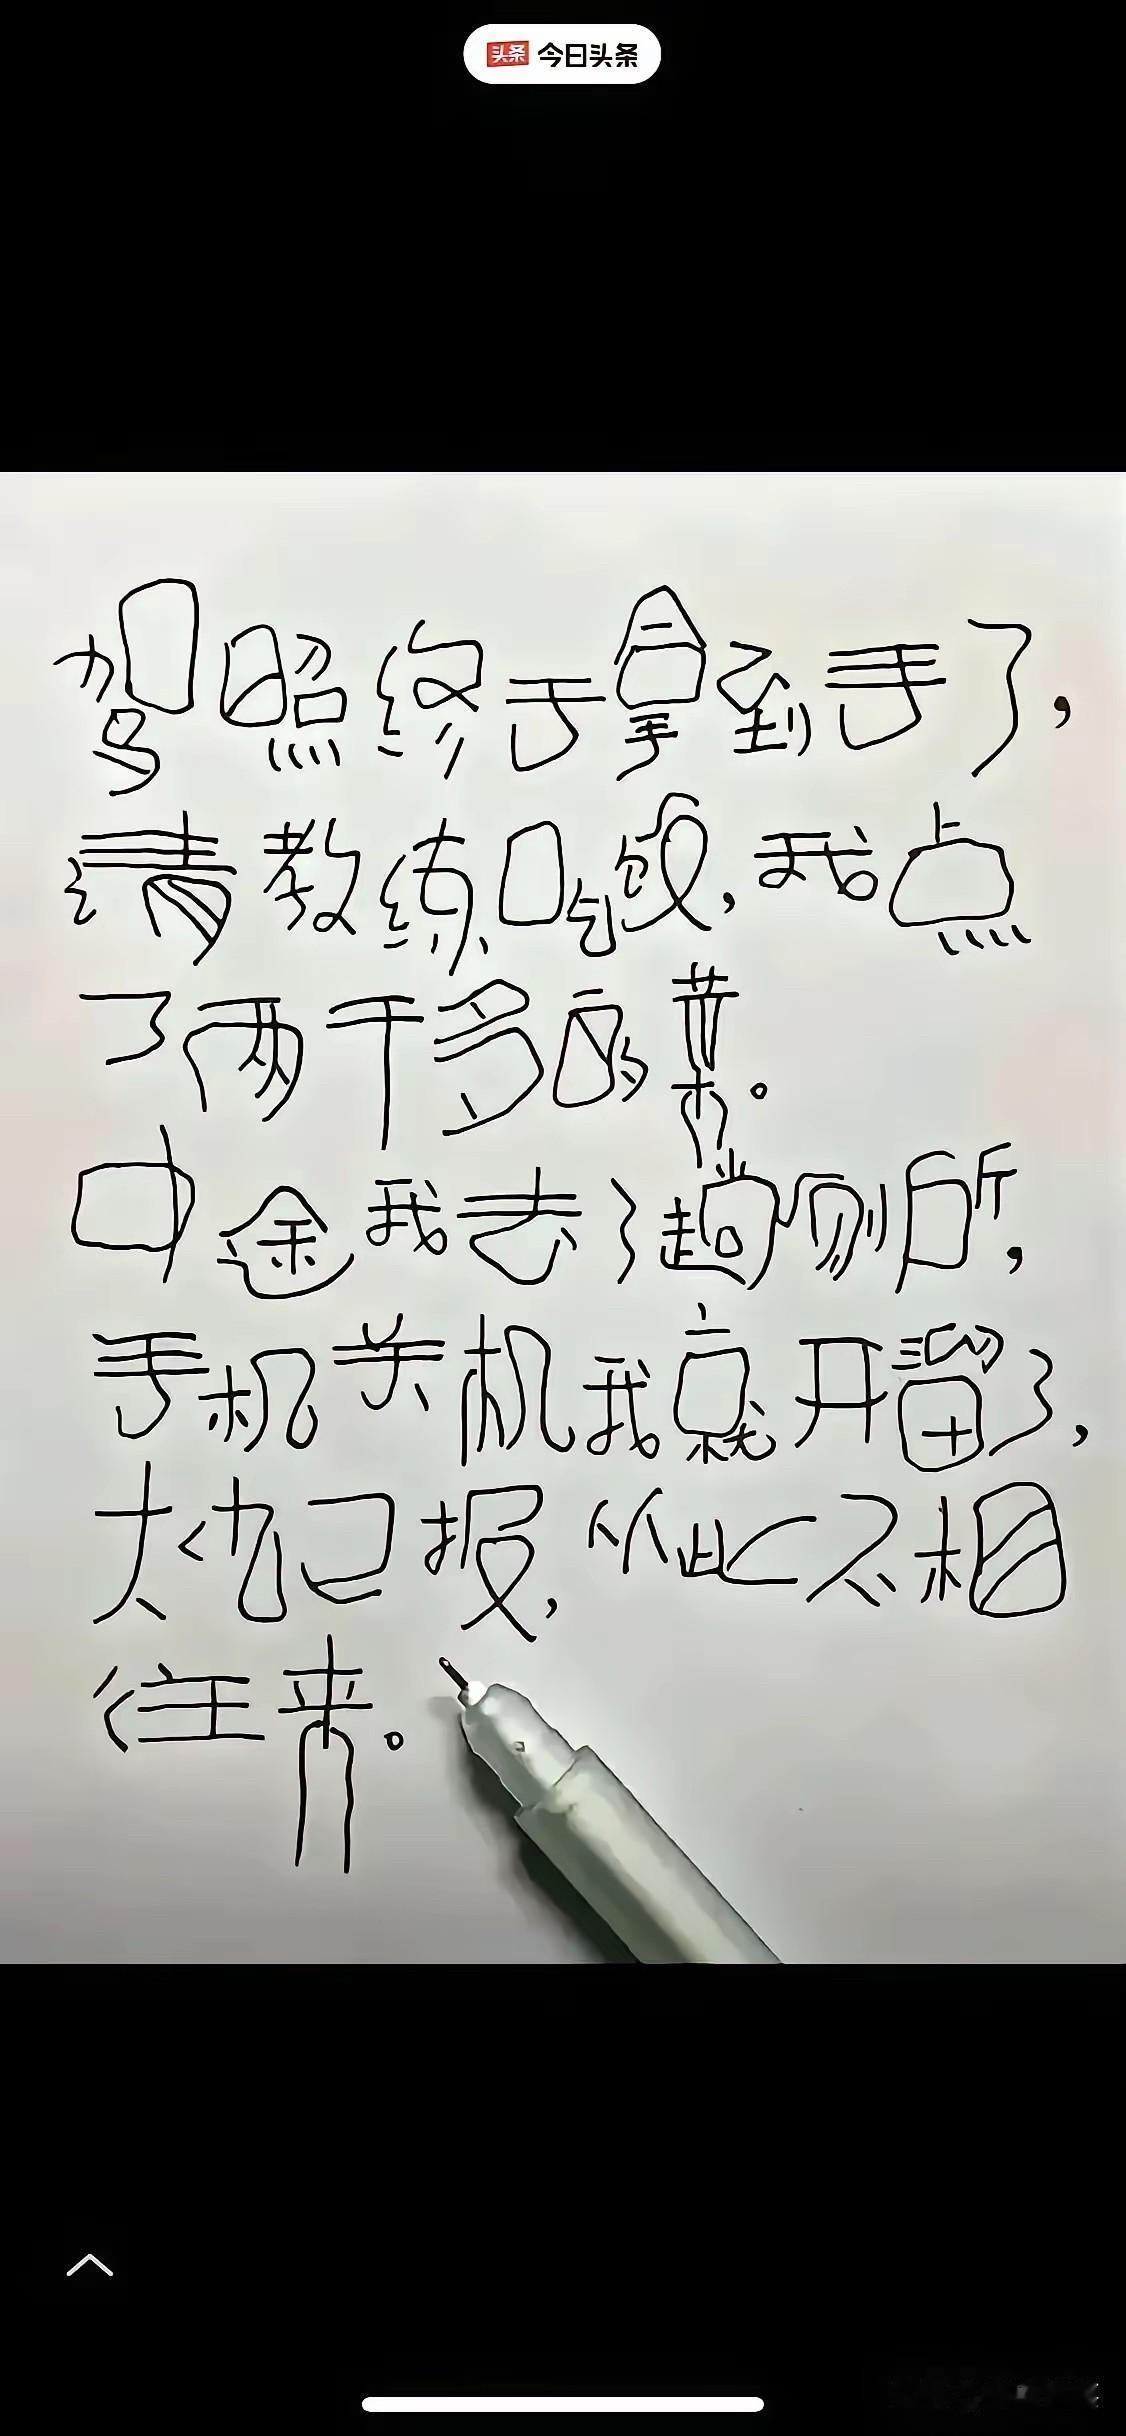 头条 今日头条
驾照终于拿到手了,
请教练吃饭,我点
了两千多的菜。
中途我去了趟厕所,
手机关机我就开溜了,
大仇已报,从此不相
往来。